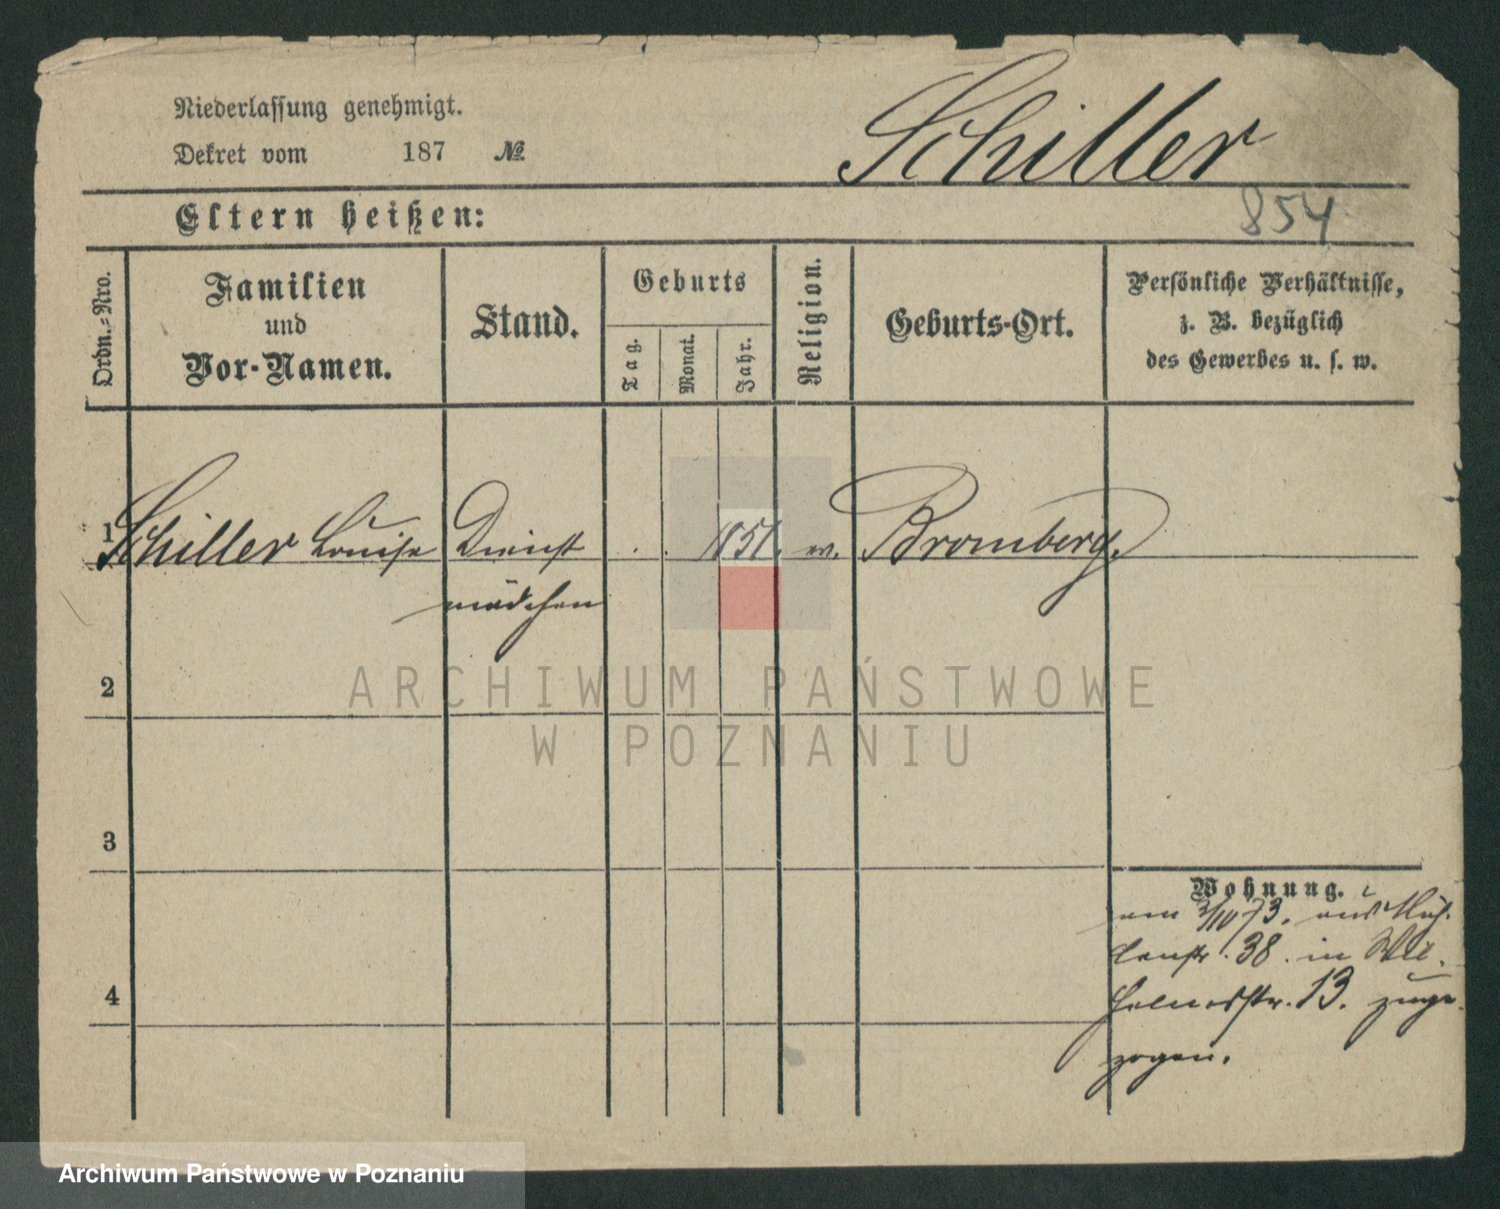 Niederlassung genehmigt.
Dekret vom 187 №
Schiller
854
Eltern heißen:
Ordn.-Nro.
Familien
und
Vor-Namen.
Stand.
Geburts
Tag.
Monat.
Jahr.
Religion.
Geburts-Ort.
Persönliche Verhältnisse,
z. B. bezüglich
des Gewerbes u. s. w.
1 Schiller Louise Dienst . . 1851. ev. Bromberg.
mädchen
2
ARCHIWUM PAŃSTWOWE
W POZNANIU
3
Wohnung.
am 3/10 73. aus Müh-
lenstr. 38. in Wil-
4
helmsstr. 13. zuge-
zogen.
Archiwum Państwowe w Poznaniu